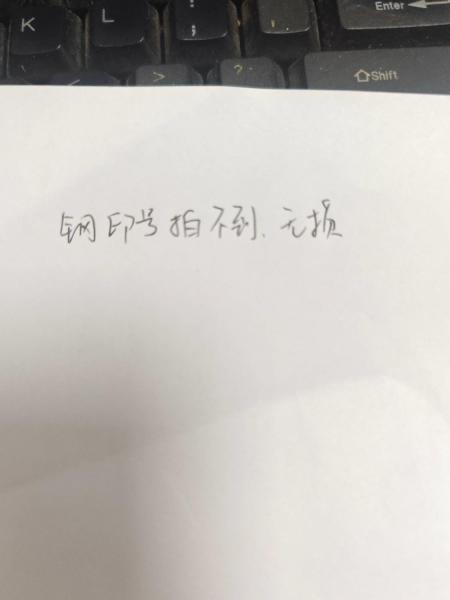 K L : ;
Enter
> ? Shift
钢印号拍不到、无损